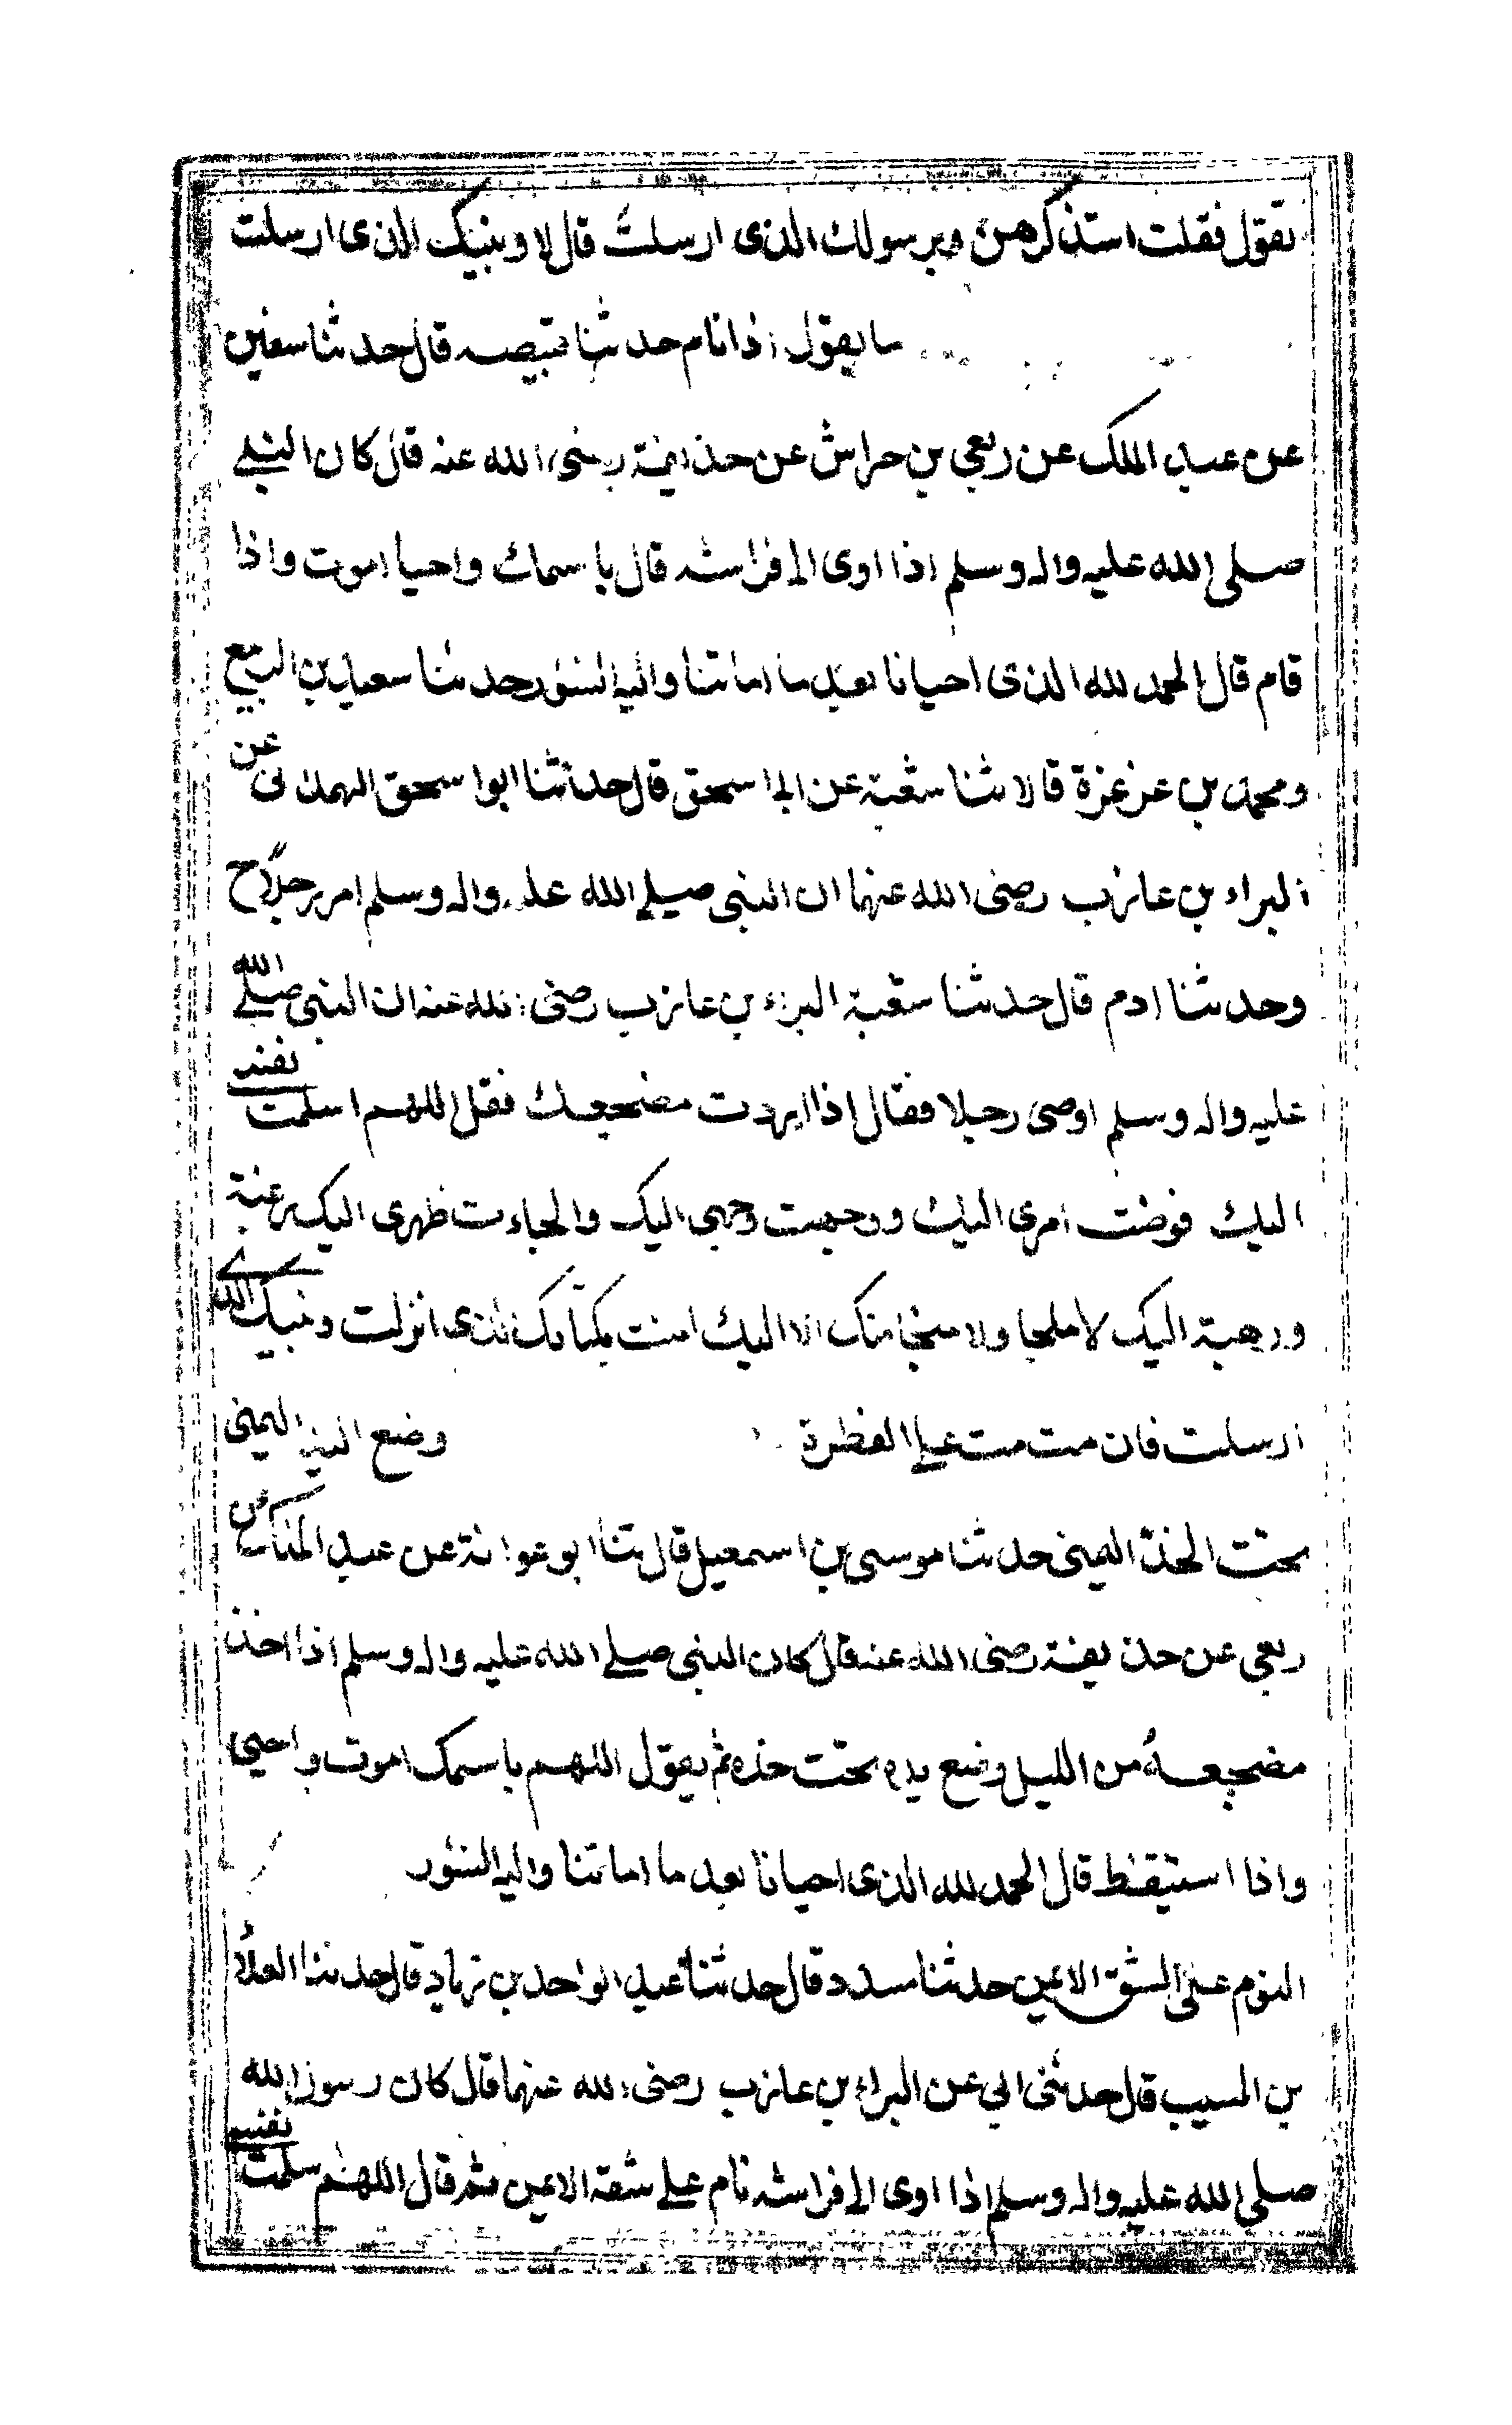 تقول فقلت استذكرهن وبرسولك الذى ارسلت قال لا وبنبيك الذى ارسلت
ما يقول اذا نام حدثنا قبيصه قال حدثنا سفين
عن عبد الملك عن ربعي بن حراش عن حذيفة رضى الله عنه قال كان النبي
صلى الله عليه واله وسلم اذا اوى الى فراشه قال باسمك واحيا اموت واذا
قام قال الحمد لله الذى احيانا بعد ما اماتنا واليه النشور حدثنا سعيد بن الربيع
ومحمد بن عرعرة قالا ثنا شعبة عن ابى اسحق قال حدثنا ابوا سحق الهمدانى عن
البراء بن عازب رضى الله عنهما ان النبى صلى الله عليه واله وسلم امر رجلا ح
وحدثنا ادم قال حدثنا شعبة البراء بن عازب رضى الله عنه ان النبى صلى الله
عليه واله وسلم اوصى رجلا فقال اذا اردت مضجعك فقل اللهم اسلمت نفسى
اليك فوضت امرى اليك ووجهت وجهى اليك والجاءت ظهرى اليك رغبة
ورهبة اليك لا ملجا ولا منجا منك الا اليك امنت بكتابك الذى انزلت ونبيك الذى
ارسلت فان مت مت على الفطرة وضع اليد اليمنى
تحت الخد اليمنى حدثنا موسى بن اسمعيل قال ثنا ابو عوانة عن عبد الملك عن
ربعى عن حذيفة رضى الله عنه قال كان النبى صلى الله عليه واله وسلم اذا اخذ
مضجعه من الليل وضع يده تحت خده ثم يقول اللهم باسمك اموت واحيى
واذا استيقظ قال الحمد لله الذى احيانا بعد ما اماتنا واليه النشور
النوم على الشق الايمن حدثنا مسدد قال حدثنا عبد الواحد بن زياد قال حدثنا العلاء
بن المسيب قال حدثنى ابي عن البراء بن عازب رضى الله عنهما قال كان رسول الله
صلى الله عليه واله وسلم اذا اوى الى فراشه نام على شقه الايمن ثم قال اللهم سلمت نفسى